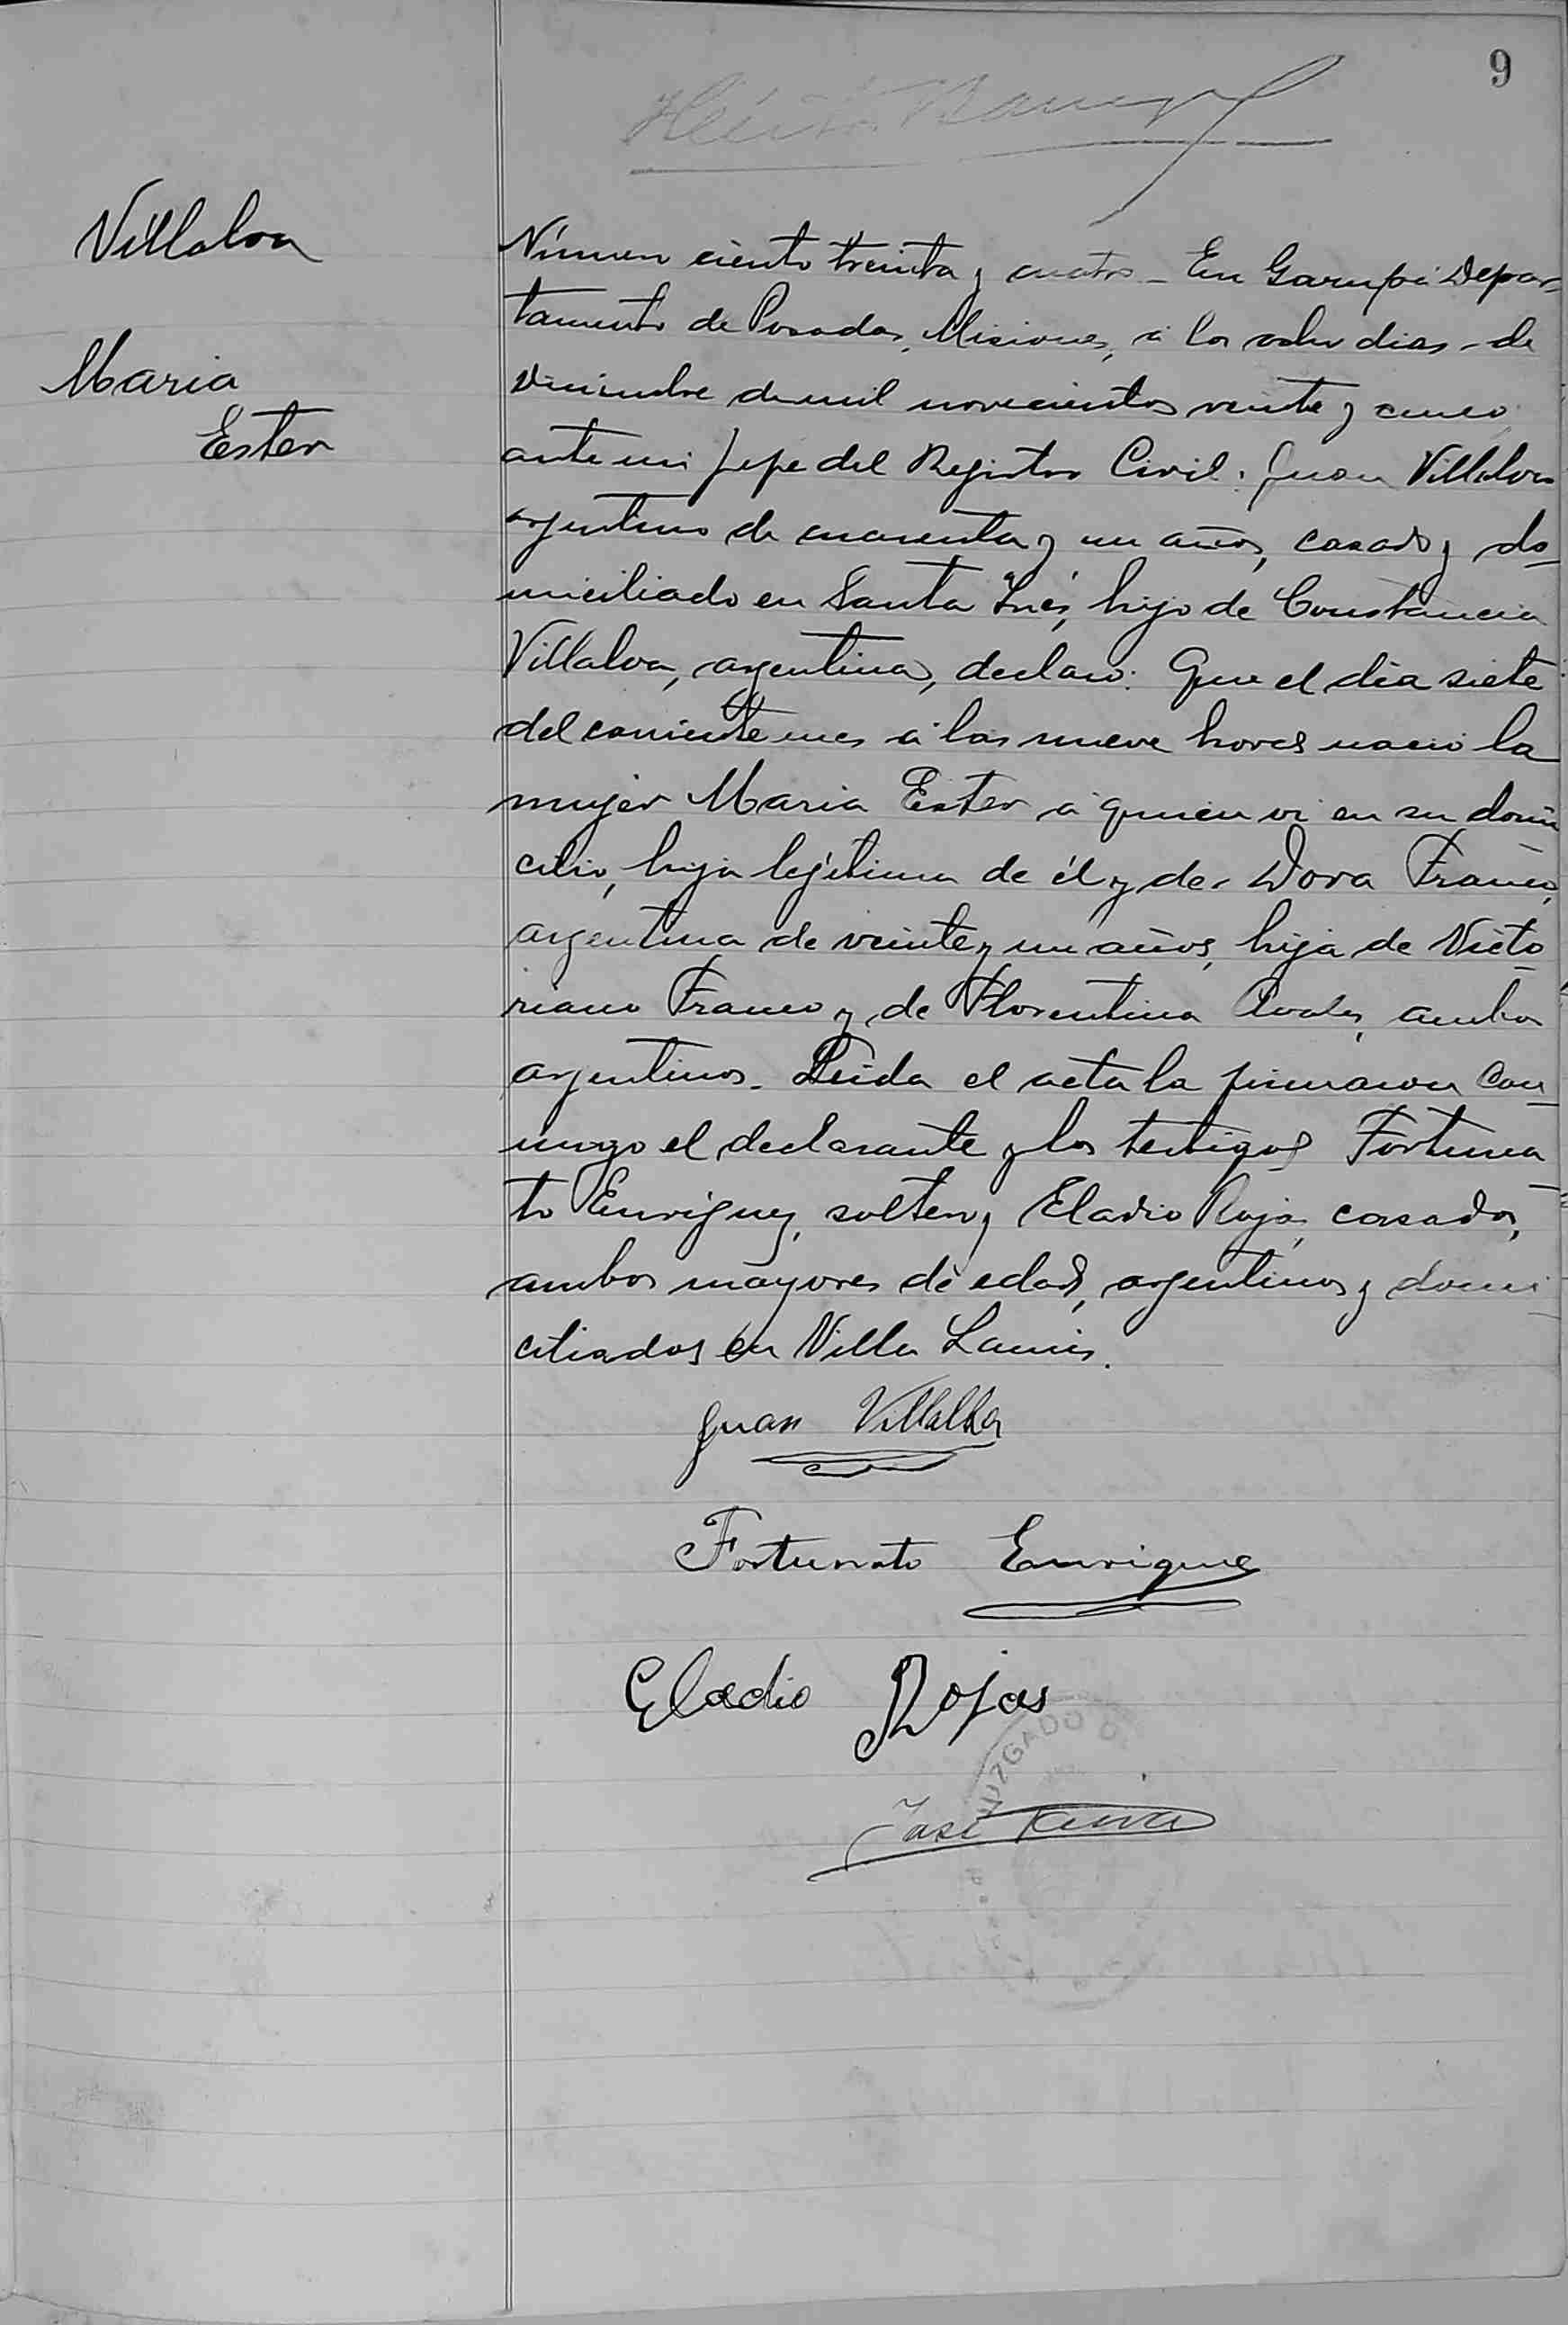 9
Villalva
Maria
Ester
Número ciento treinta y cuatro - En Garupá Depar-
tamento de Posadas, Misiones, á los ocho dias - de
Diciembre de mil novecientos veinte y cinco
ante mi Jefe del Registro Civil: Juan Villalva
argentino de cuarenta y un años, casado y do-
miciliado en Santa Inés, hijo de Constancia
Villalva, argentina, declaró: Que el dia siete
del corriente mes á las nueve horas nació la
mujer Maria Ester á quien vi en su domi
cilio, hija legítima de él y de - Dora Franco,
argentina de veinte y un años, hija de Victo-
riano Franco y de Florentina Avalos, ambos
argentinos. Leida el acta la firmaron con-
migo el declarante y los testigos Fortuna-
to Enriquez, soltero y Eladio Rojas, casado,
ambos mayores de edad, argentinos y domi-
ciliados en Villa Lanús.
Juan Villalba
Fortunato Enrique
Eladio Rojas
JUZGADO
José